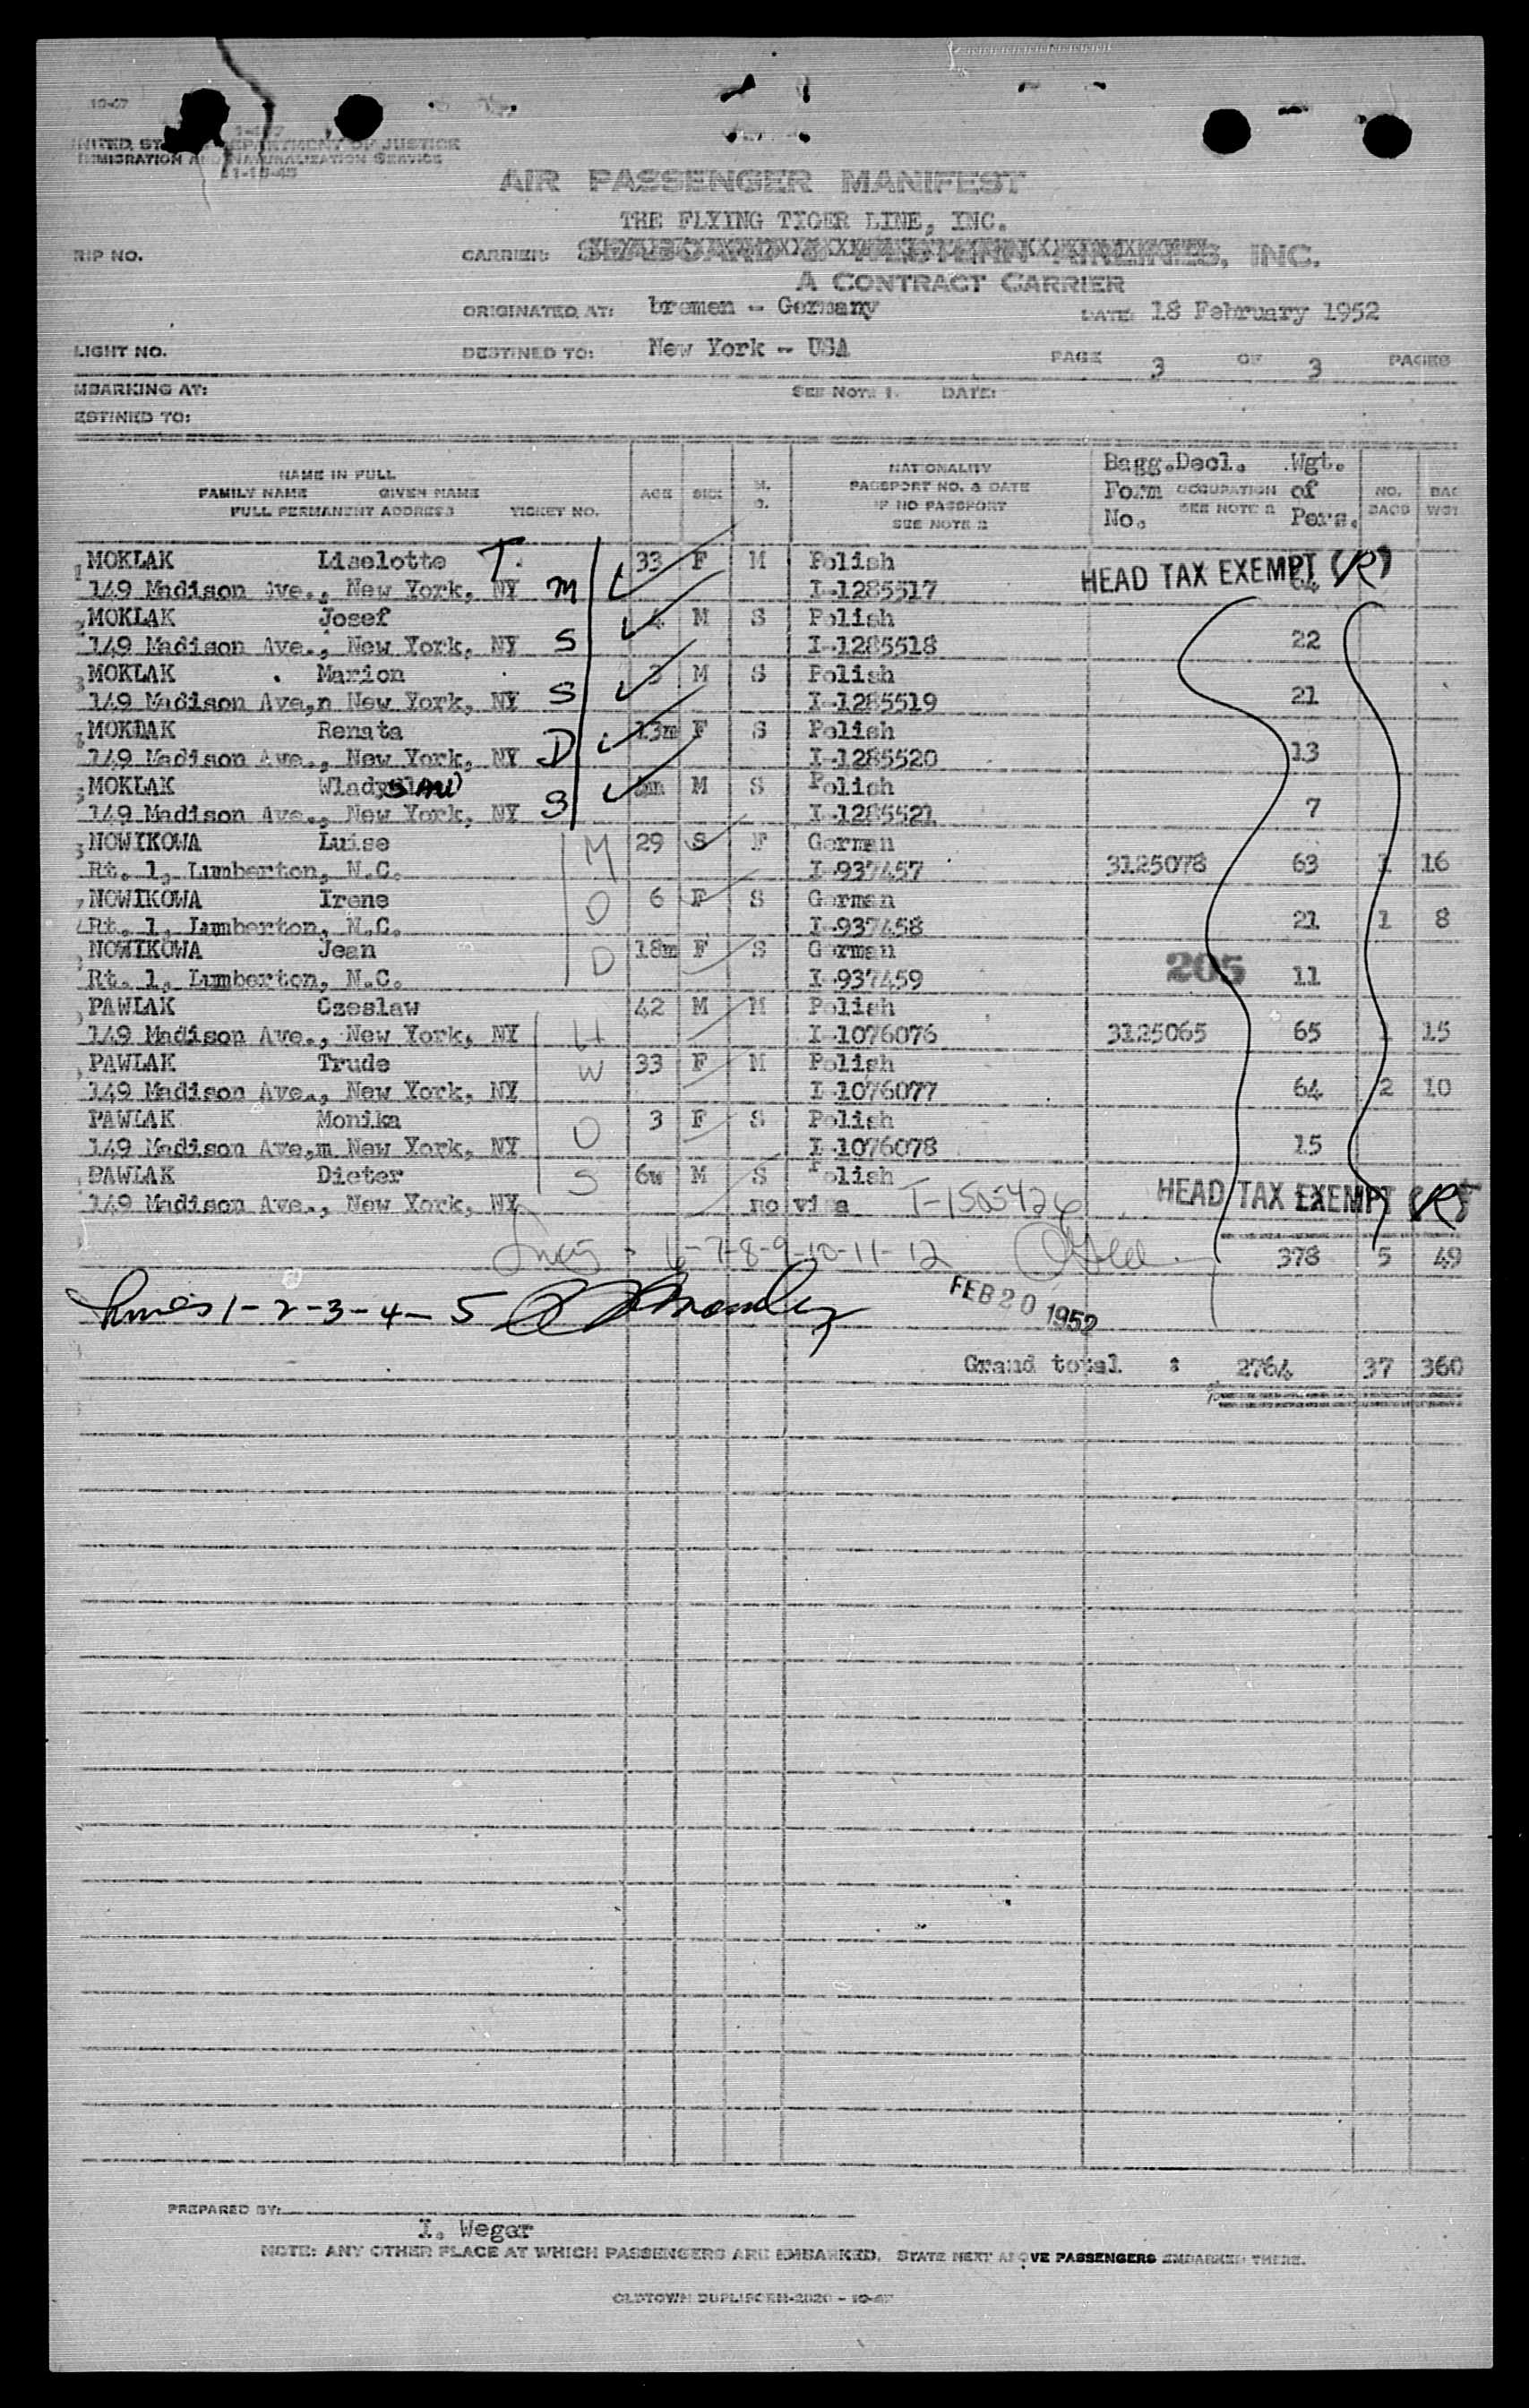 10-47
UNITED ST DEPARTMENT OF JUSTICE
IMMIGRATION AND NATURALIZATION SERVICE
AIR PASSENGER MANIFEST
THE FLYING TIGER LINE, INC.
RIP NO. CARRIER: SEABOARD & WESTERN AIRLINES, INC.
A CONTRACT CARRIER
ORIGINATED AT: bremen - Germany DATE: 18 February 1952
LIGHT NO. DESTINED TO: New York - USA PAGE 3 OF 3 PAGES
MBARKING AT: SEE NOTE 1. DATE:
ESTINED TO:
NAME IN FULL
FAMILY NAME GIVEN NAME
FULL PERMANENT ADDRESS TICKET NO.
AGE SEX M. S.
NATIONALITY
PASSPORT NO. & DATE
IF NO PASSPORT
SEE NOTE 2
Bagg.Decl. Wgt.
Form OCCUPATION of
No. SEE NOTE 2 Pers.
NO. BAGS BAG WGT
1 MOKLAK Liselotte T. 33 F M Polish
149 Madison Ave., New York, NY M I-1285517 HEAD TAX EXEMPT (R) 64
2 MOKLAK Josef 4 M S Polish
149 Madison Ave., New York, NY S I-1285518 22
3 MOKLAK Marion 3 M S Polish
149 Madison Ave,n New York, NY S I-1285519 21
4 MOKLAK Renata 13m F S Polish
149 Madison Ave., New York, NY D I-1285520 13
5 MOKLAK WladySLAW M S Polish
149 Madison Ave., New York, NY S I-1285521 7
NOWIKOWA Luise M 29 S F German
Rt. 1, Lumberton, N.C. I-937457 3125078 63 1 16
NOWIKOWA Irene D 6 F S German
Rt. 1, Lumberton, N.C. I-937458 21 1 8
NOWIKOWA Jean D 18m F S German
Rt. 1, Lumberton, N.C. I-937459 205 11
PAWLAK Czeslaw 42 M M Polish
149 Madison Ave., New York, NY H I-1076076 3125065 65 1 15
PAWLAK Trude W 33 F M Polish
149 Madison Ave., New York, NY I-1076077 64 2 10
PAWLAK Monika D 3 F S Polish
149 Madison Ave,m New York, NY I-1076078 15
PAWLAK Dieter S 6w M S Polish
149 Madison Ave., New York, NY no visa T-1505426 HEAD TAX EXEMPT (R) 12
Lines - 6-7-8-9-10-11-12 378 5 49
Lines 1-2-3-4-5 FEB 20 1952
Grand total : 2764 37 360
PREPARED BY:
I. Weger
NOTE: ANY OTHER PLACE AT WHICH PASSENGERS ARE EMBARKED, STATE NEXT ABOVE PASSENGERS EMBARKED THERE.
OLDTOWN DUPLIFORM-2020 - 10-47